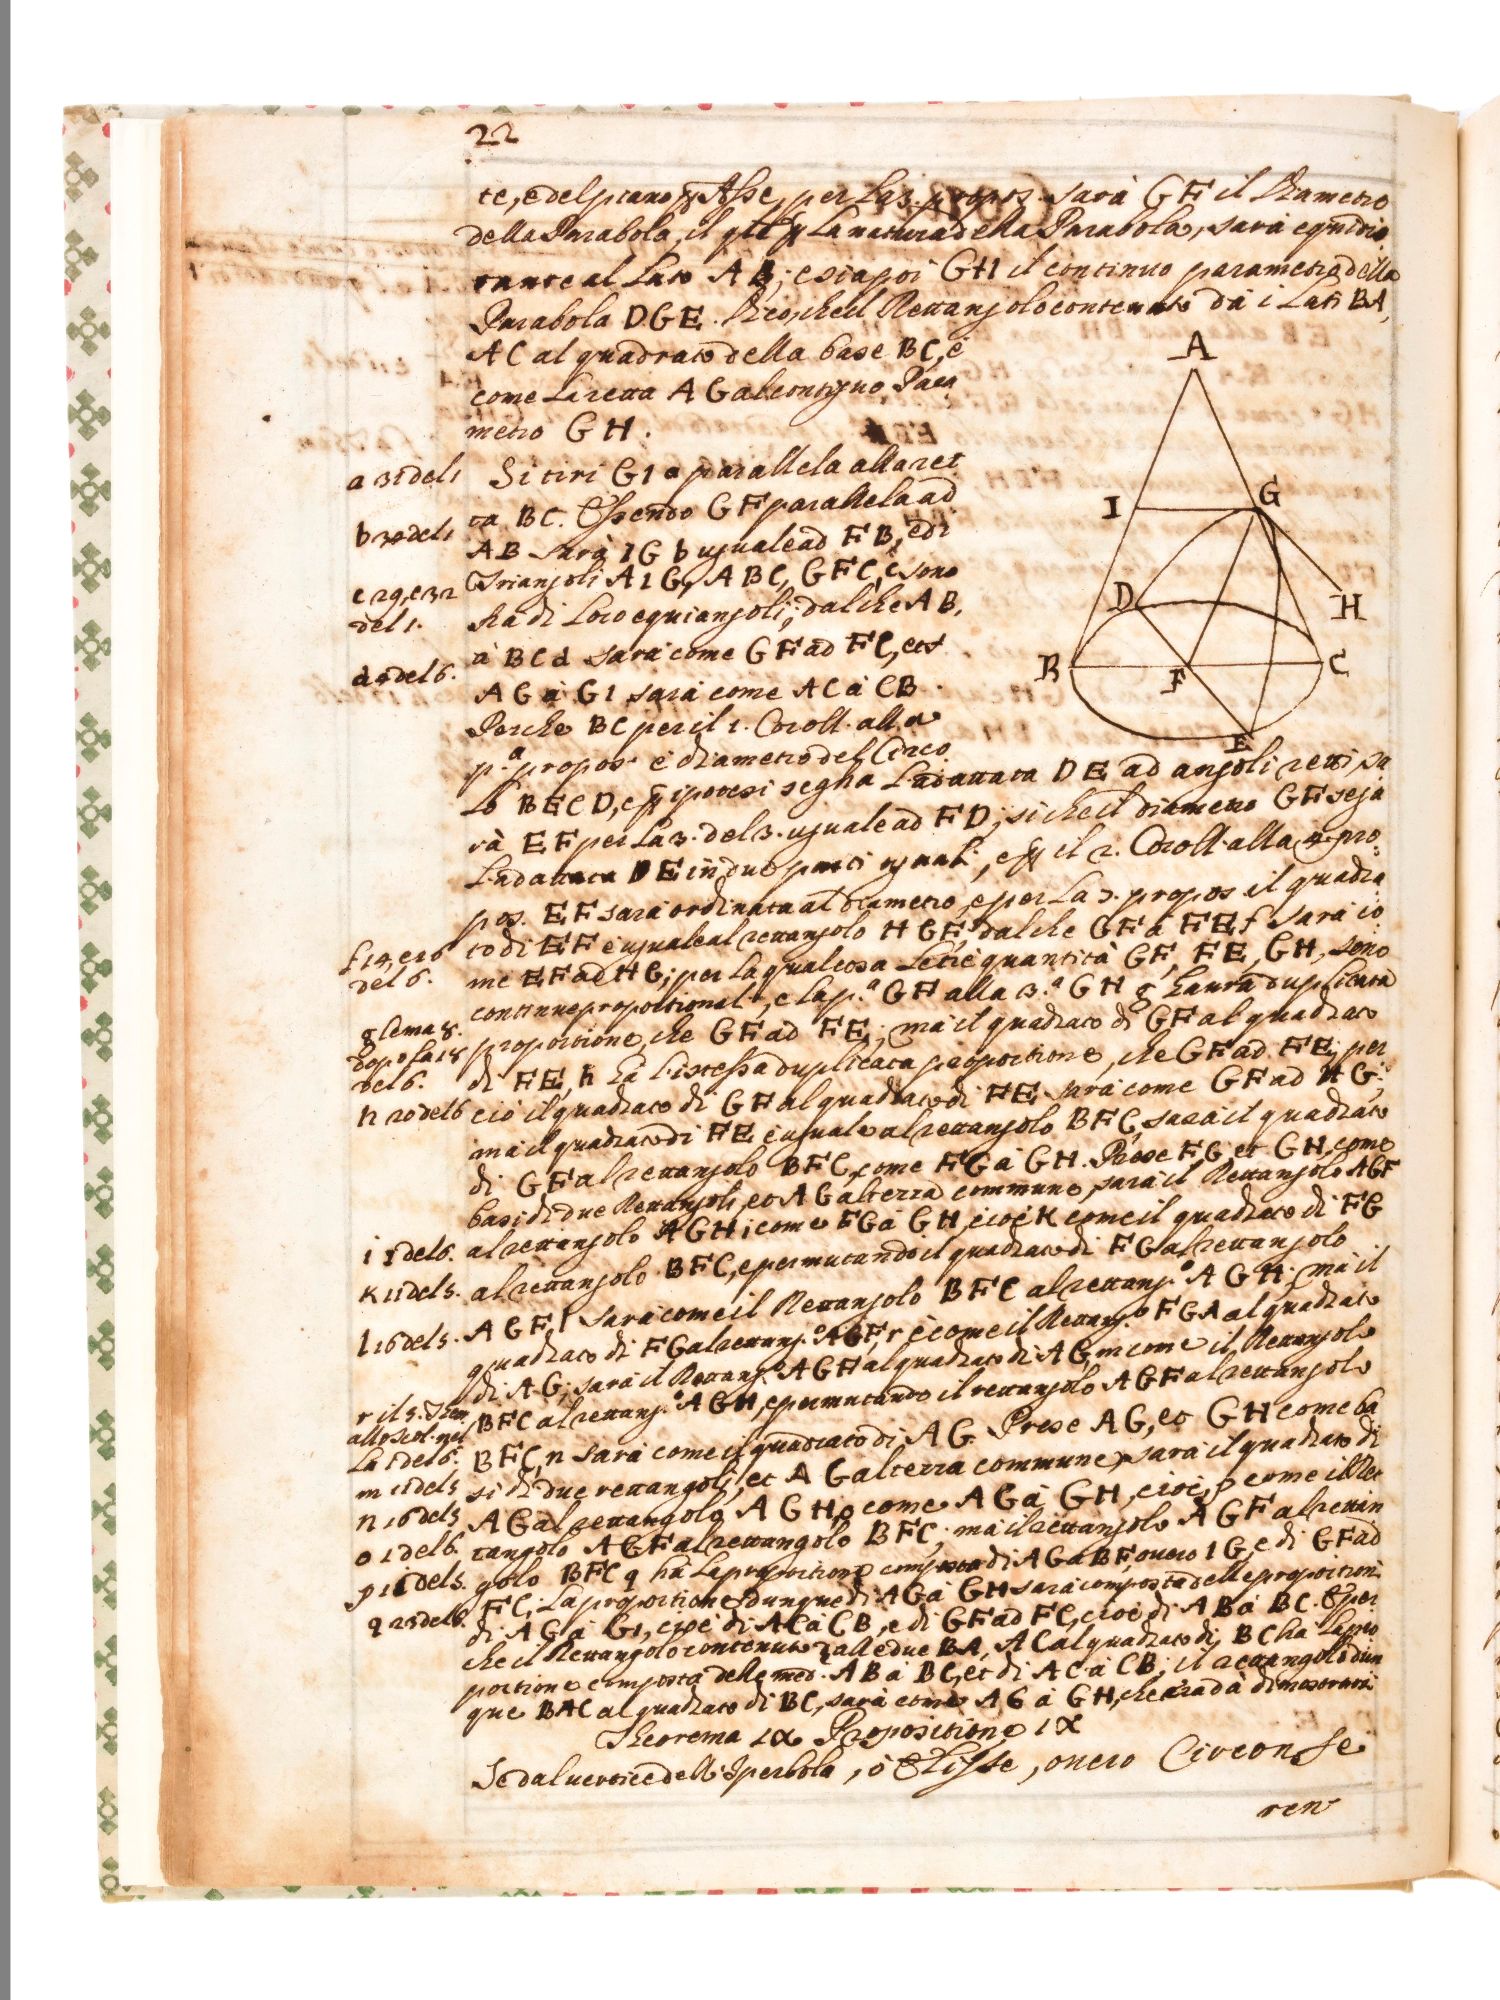 22
te, e del piano p Asse, per la 3. propos. sarà GF il Diametro
della Parabola, il qle p la natura della Parabola, sarà equidis
tante al Lato AB; e sia poi GH il contiguo parametro della
Parabola DGE. Dico, che il Rettangolo contenuto dà i Lati BA,
AC al quadrato della base BC, è
come la retta AG al contiguo Para
metro GH.
A
I
G
D
H
B
F
C
E
a 31 del 1
Si tiri GI a parallela alla ret
ta BC. Essendo GF parallela ad
b 34 del 1
AB sarà IG b uguale ad FB, e di
c 29, e 32
del 1.
Triangoli AIG, ABC, GFC, c sono
frà di Loro equiangoli; dal che AB,
d 4 del 6.
à BC d sarà come GF ad FC, et
AG à GI sarà come AC à CB.
Perche BC per il 1. Coroll. alla
p.a propos. è diametro del Circo
lo BECD, e p ipotesi segna l'adattata DE ad angoli retti, sa
rà EF per la 3. del 3. uguale ad FD; si che il diametro GF sega
l'adattata DE in due parti uguali, e p il 2. Coroll. alla 4. pro
pos. EF sarà ordinata al diametro, e per la 3. propos. il quadra
to di EF è uguale al rettangolo HGF, dal che GF à FE f sarà co
f 14, e 16
del 6.
me EF ad HG; per la qual cosa le tre quantità GF, FE, GH, sono
continue proportionali, e la p.a GF alla 3.a GH g haurà duplicata
g lema 8.
dopo la 18
del 6.
proportione, che GF ad FE; mà il quadrato di GF al quadrato
di FE, h hà l'istessa duplicata proportione, che GF ad FE; per
h 20 del 6
ciò il quadrato di GF al quadrato di FE sarà come GF ad HG;
mà il quadrato di FE è uguale al rettangolo BFC, sarà il quadrato
di GF al rettangolo BFC, come FG à GH. Prese FG, et GH, come
basi di due Rettangoli, et AG altezza commune, sarà il Rettangolo AGF
i 1 del 6.
al rettangolo AGH i come FG à GH, cioè K come il quadrato di FG
K 11 del 5.
al rettangolo BFC, e permutando il quadrato di FG al rettangolo
l 16 del 5.
AGF l sarà come il Rettangolo BFC al rettang.o AGH; mà il
quadrato di FG al rettang.o AGF, r è come il Rettang.o FGA al quadrato
di AG; sarà il Rettang.o AGH al quadrato di AG, m come il Rettangolo
r il 5. Teor.
allo Scol. nel
la 1 del 6.
BFC al rettang.o AGH, e permutando il rettangolo AGF al rettangolo
BFC, n sarà come il quadrato di AG. Prese AG, et GH come ba
m 11 del 5
si di due rettangoli, et AG altezza commune, sarà il quadrato di
n 16 del 5
AG al rettangolo AGH, o come AG à GH, cioè, p come il Ret
o 1 del 6.
tangolo AGF al rettangolo BFC; mà il rettangolo AGF al rettan
p 11 del 5.
golo BFC q hà la proportione composta di AG à BF, ouero IG, e di GF ad
q 23 del 6.
FC; La proportione dunque di AG à GH sarà composta delle proportioni
di AG à GI, cioè di AC à CB, e di GF ad FC, cioè di AB à BC. E per
che il Rettangolo contenuto dalle due BA, AC al quadrato di BC hà la pro
portione composta delle med. AB à BC, et di AC à CB; il rettangolo dun
que BAC al quadrato di BC, sarà come AG à GH, che era da dimostrarsi
Theorema IX Propositione IX
Se dal uertice dell'Iperbola, ò Elisse, ouero Circonfe
ren